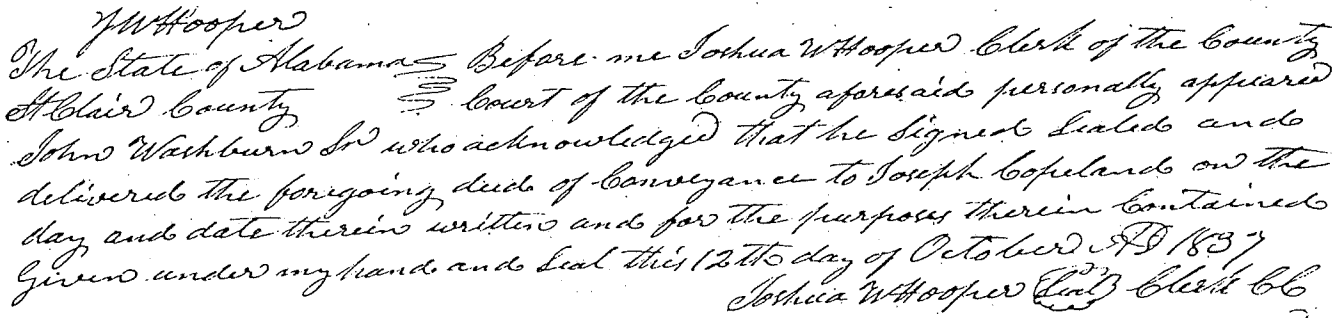 J W Hooper
The State of Alabama Before me Joshua W Hooper Clerk of the County
St Clair County Court of the County aforesaid personally appeared
John Washburn Sr who acknowledged that he Signed Sealed and
delivered the foregoing deed of Conveyance to Joseph Copeland on the
day and date therein written and for the purposes therein Contained
Given under my hand and Seal this 12th day of October AD 1837
Joshua W Hooper (Seal) Clerk CC